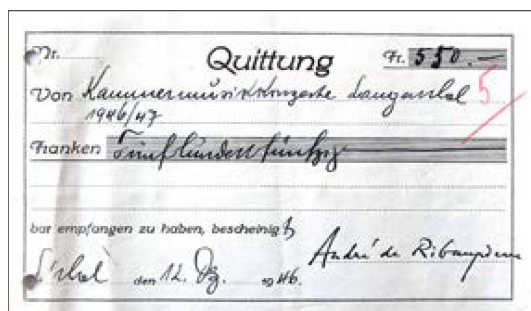 Nr. Quittung Fr. 550.—
Von Kammermusikkonzerte Langenthal 5
1946/47
Franken Fünfhundertfünfzig
bar empfangen zu haben, bescheinigt
den 12. Dz. 1946. André de Ribaupierre